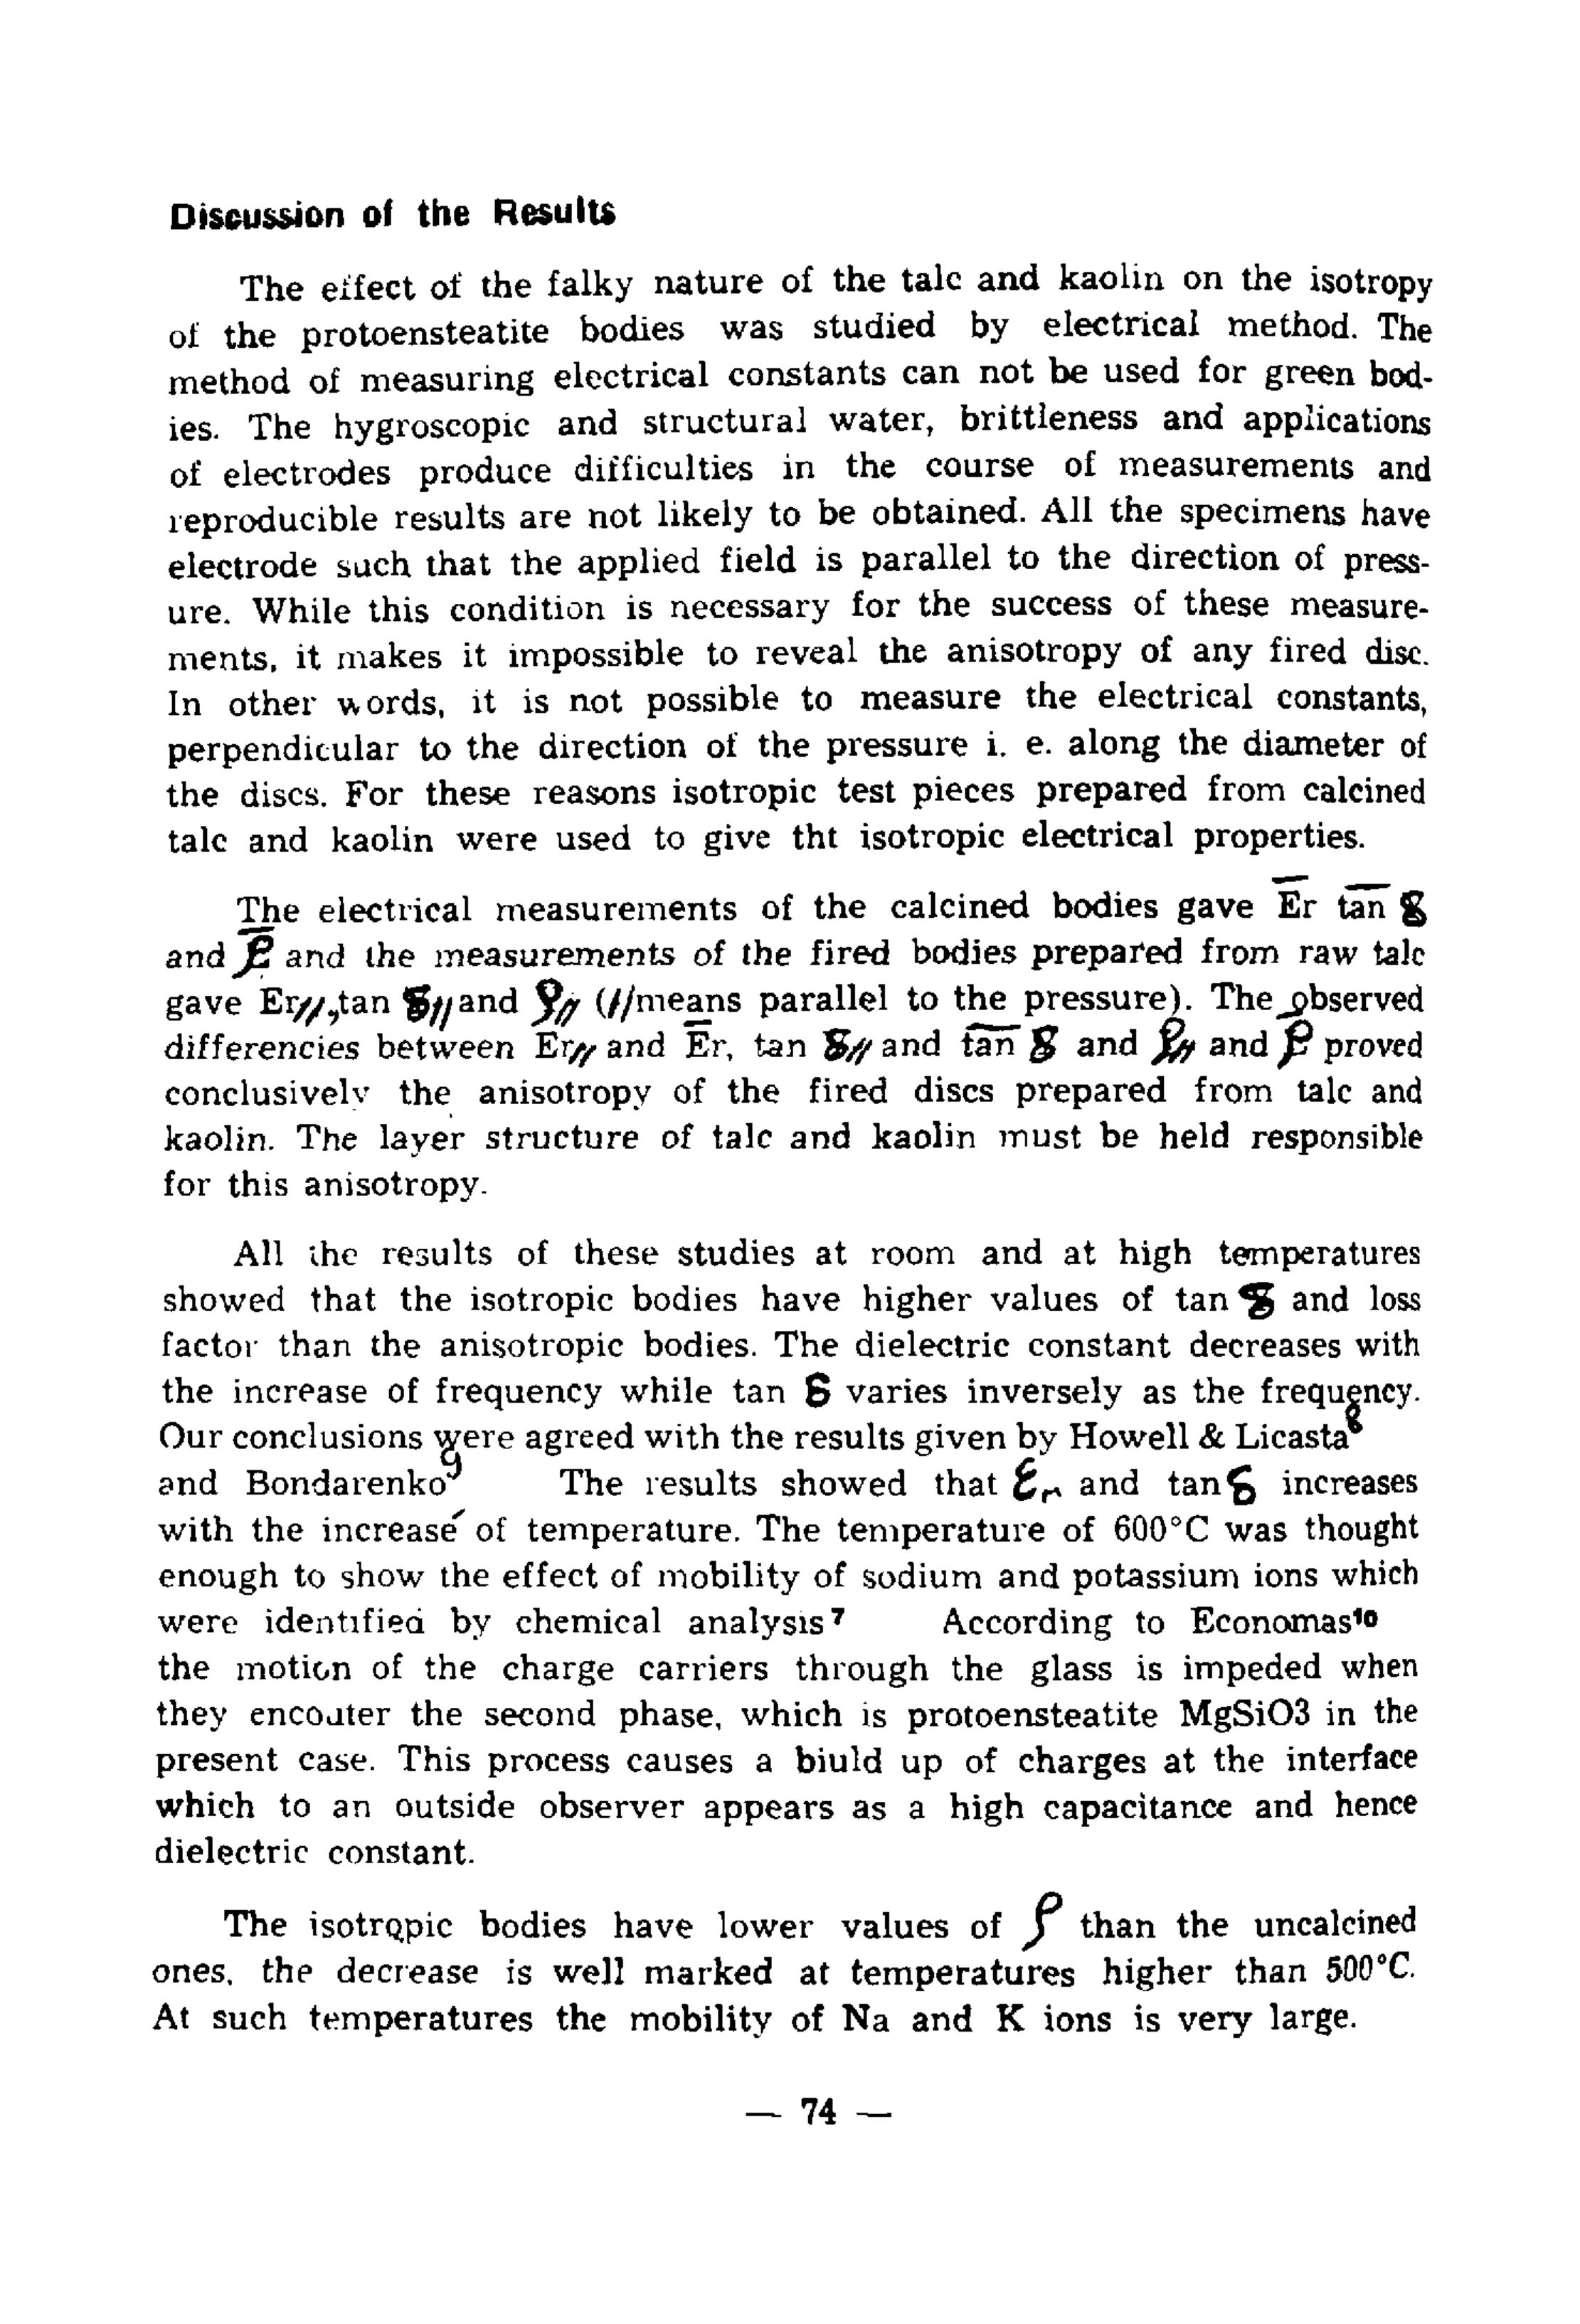 Discussion of the Results
The effect of the falky nature of the talc and kaolin on the isotropy
of the protoensteatite bodies was studied by electrical method. The
method of measuring electrical constants can not be used for green bod-
ies. The hygroscopic and structural water, brittleness and applications
of electrodes produce difficulties in the course of measurements and
reproducible results are not likely to be obtained. All the specimens have
electrode such that the applied field is parallel to the direction of press-
ure. While this condition is necessary for the success of these measure-
ments, it makes it impossible to reveal the anisotropy of any fired disc.
In other words, it is not possible to measure the electrical constants,
perpendicular to the direction of the pressure i. e. along the diameter of
the discs. For these reasons isotropic test pieces prepared from calcined
talc and kaolin were used to give tht isotropic electrical properties.
The electrical measurements of the calcined bodies gave E̅r t̅a̅n̅ δ
and ρ̅ and the measurements of the fired bodies prepared from raw talc
gave Er//,,tan δ// and ρ// (//means parallel to the pressure). The observed
differencies between Er// and E̅r, tan δ// and t̅a̅n̅ δ and ρ// and ρ̅ proved
conclusively the anisotropy of the fired discs prepared from talc and
kaolin. The layer structure of talc and kaolin must be held responsible
for this anisotropy.
All the results of these studies at room and at high temperatures
showed that the isotropic bodies have higher values of tan δ and loss
factor than the anisotropic bodies. The dielectric constant decreases with
the increase of frequency while tan δ varies inversely as the frequency.
Our conclusions were agreed with the results given by Howell & Licasta⁸
and Bondarenko⁹ The results showed that εr and tan δ increases
with the increase of temperature. The temperature of 600°C was thought
enough to show the effect of mobility of sodium and potassium ions which
were identified by chemical analysis⁷ According to Economas¹⁰
the motion of the charge carriers through the glass is impeded when
they encouter the second phase, which is protoensteatite MgSiO3 in the
present case. This process causes a biuld up of charges at the interface
which to an outside observer appears as a high capacitance and hence
dielectric constant.
The isotropic bodies have lower values of ρ than the uncalcined
ones, the decrease is well marked at temperatures higher than 500°C.
At such temperatures the mobility of Na and K ions is very large.
— 74 —